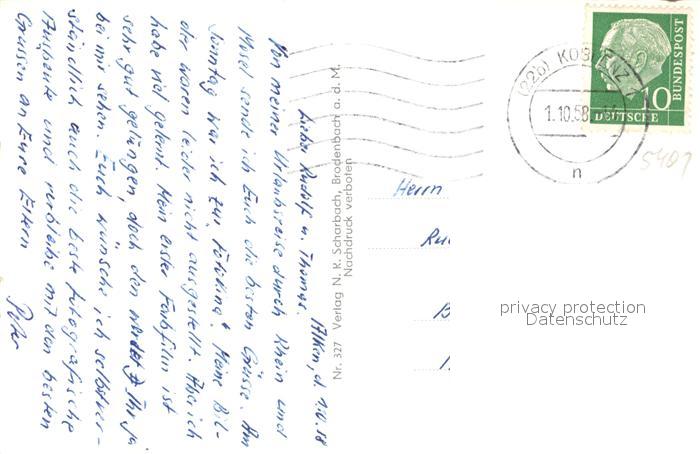 Lieber Rudolf u. Thomas. Alken, d. 1.10.58
Von meiner Urlaubsreise durch Rhein und
Mosel sende ich Euch die besten Grüsse. Am
Sonntag war ich zur "Fotokina". Meine Bil-
der waren leider nicht ausgestellt. Aber ich
habe viel gelernt. Mein erster Farbfilm ist
sehr gut gelungen, doch den werdet Ihr ja
bei mir sehen. Euch wünsche ich selbstver-
ständlich auch die beste fotografische
Ausbeute und verbleibe mit den besten
Grüssen an Eure Eltern
Peter
Nr. 327 Verlag N. K. Scharbach, Brodenbach a. d. M.
Nachdruck verboten
(22b) KOBLENZ 2
1.10.58
n
DEUTSCHE BUNDESPOST
10
5401
Herrn
privacy protection
Datenschutz